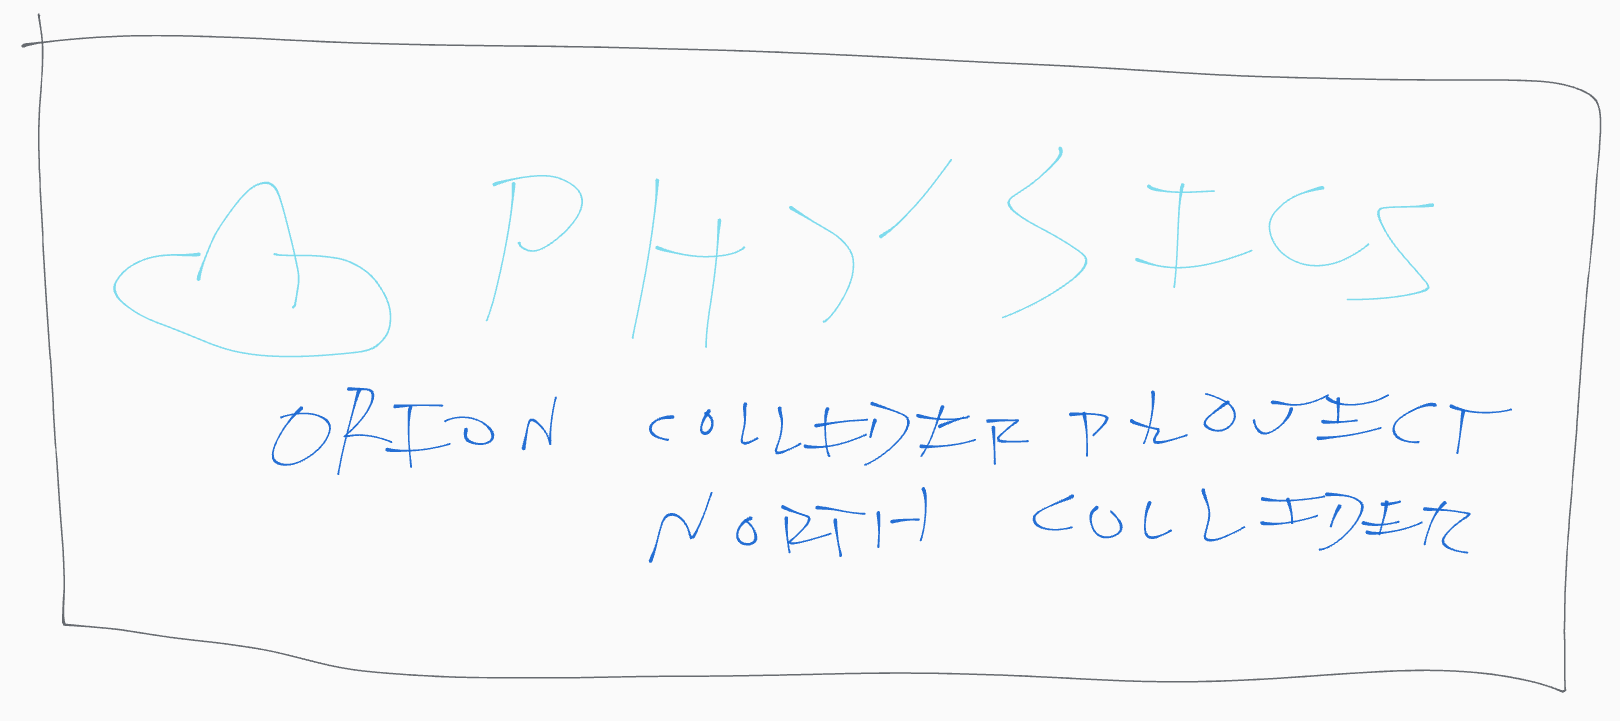 PHYSICS
ORION COLLIDER PROJECT
NORTH COLLIDER